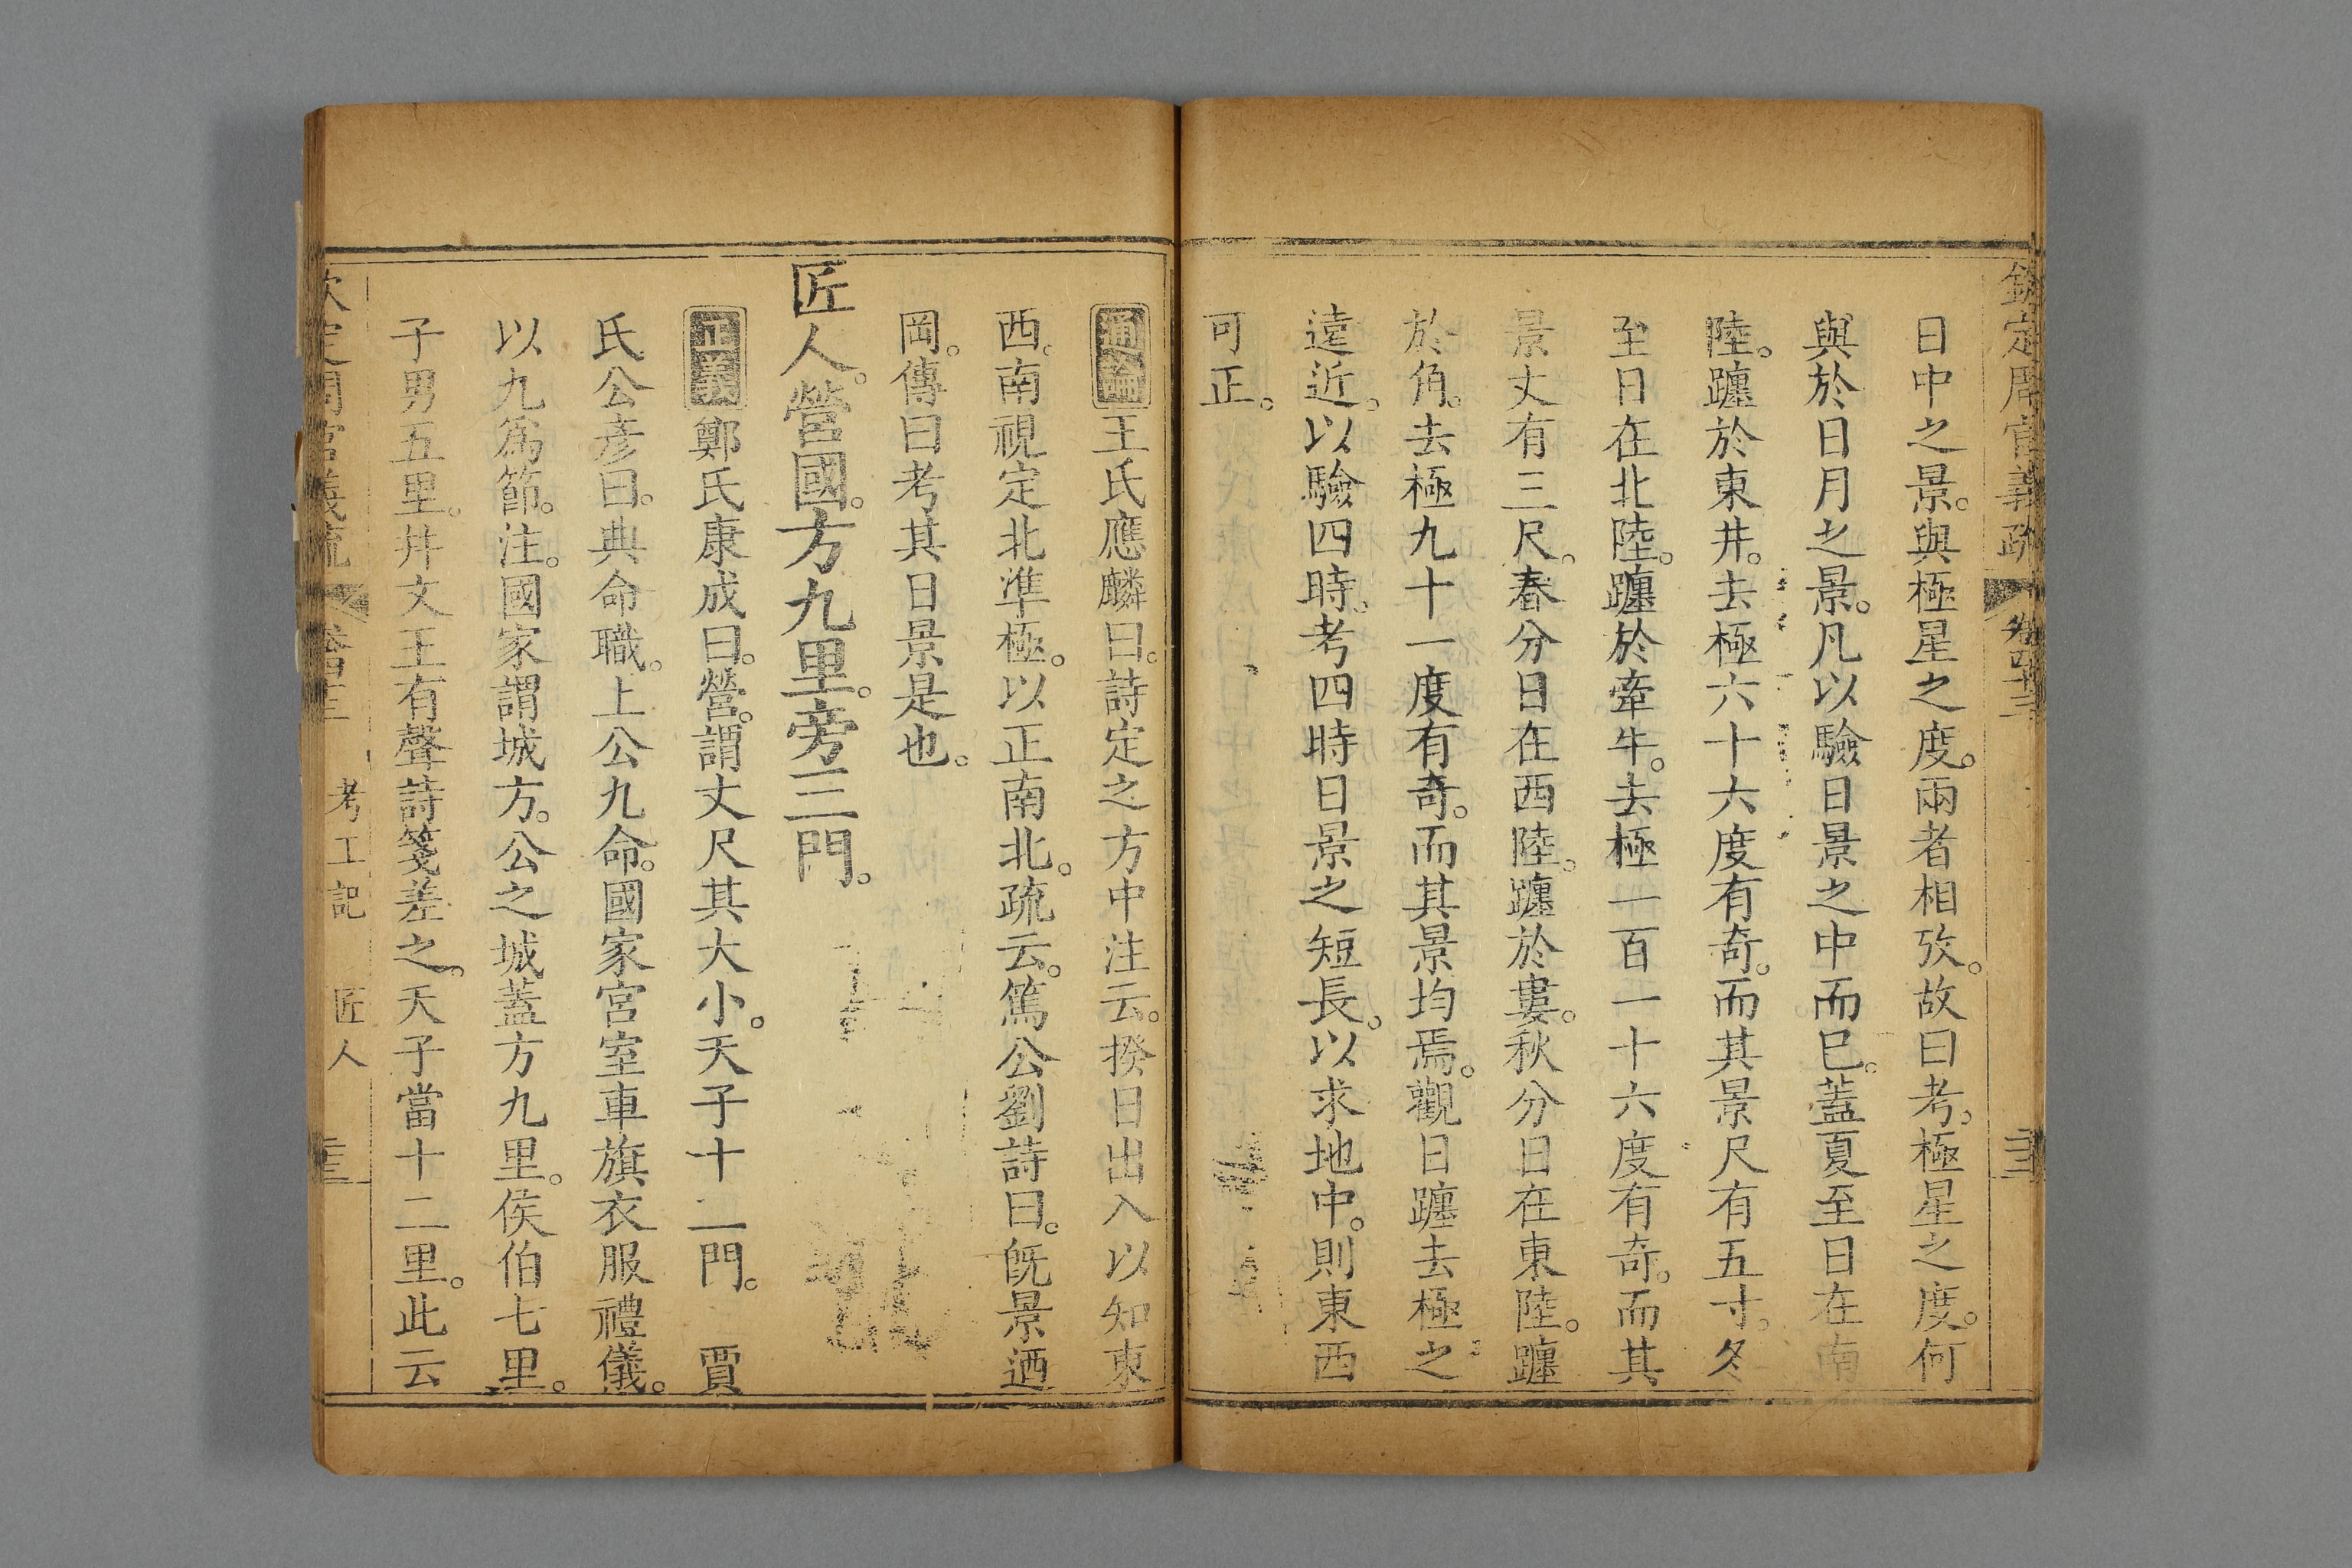 欽定周官義疏 卷四十三
日中之景。與極星之度。兩者相攷。故曰考。極星之度。何
與於日月之景。凡以驗日景之中而已。蓋夏至日在南
陸。躔於東井。去極六十六度有奇。而其景尺有五寸。冬
至日在北陸。躔於牽牛。去極一百一十六度有奇。而其
景丈有三尺。春分日在西陸。躔於婁。秋分日在東陸。躔
於角。去極九十一度有奇。而其景均焉。觀日躔去極之
遠近。以驗四時。考四時日景之短長。以求地中。則東西
可正。
通論 王氏應麟曰。詩定之方中注云。揆日出入以知東
西。南視定北準極。以正南北。疏云。篤公劉詩曰。旣景迺
岡。傳曰考其日景是也。
匠人。營國。方九里。旁三門。
正義 鄭氏康成曰。營。謂丈尺其大小。天子十二門。 賈
氏公彥曰。典命職。上公九命。國家宮室車旗衣服禮儀。
以九爲節。注。國家謂城方。公之城蓋方九里。侯伯七里。
子男五里。幷文王有聲詩箋差之。天子當十二里。此云
欽定周官義疏 考工記 匠人